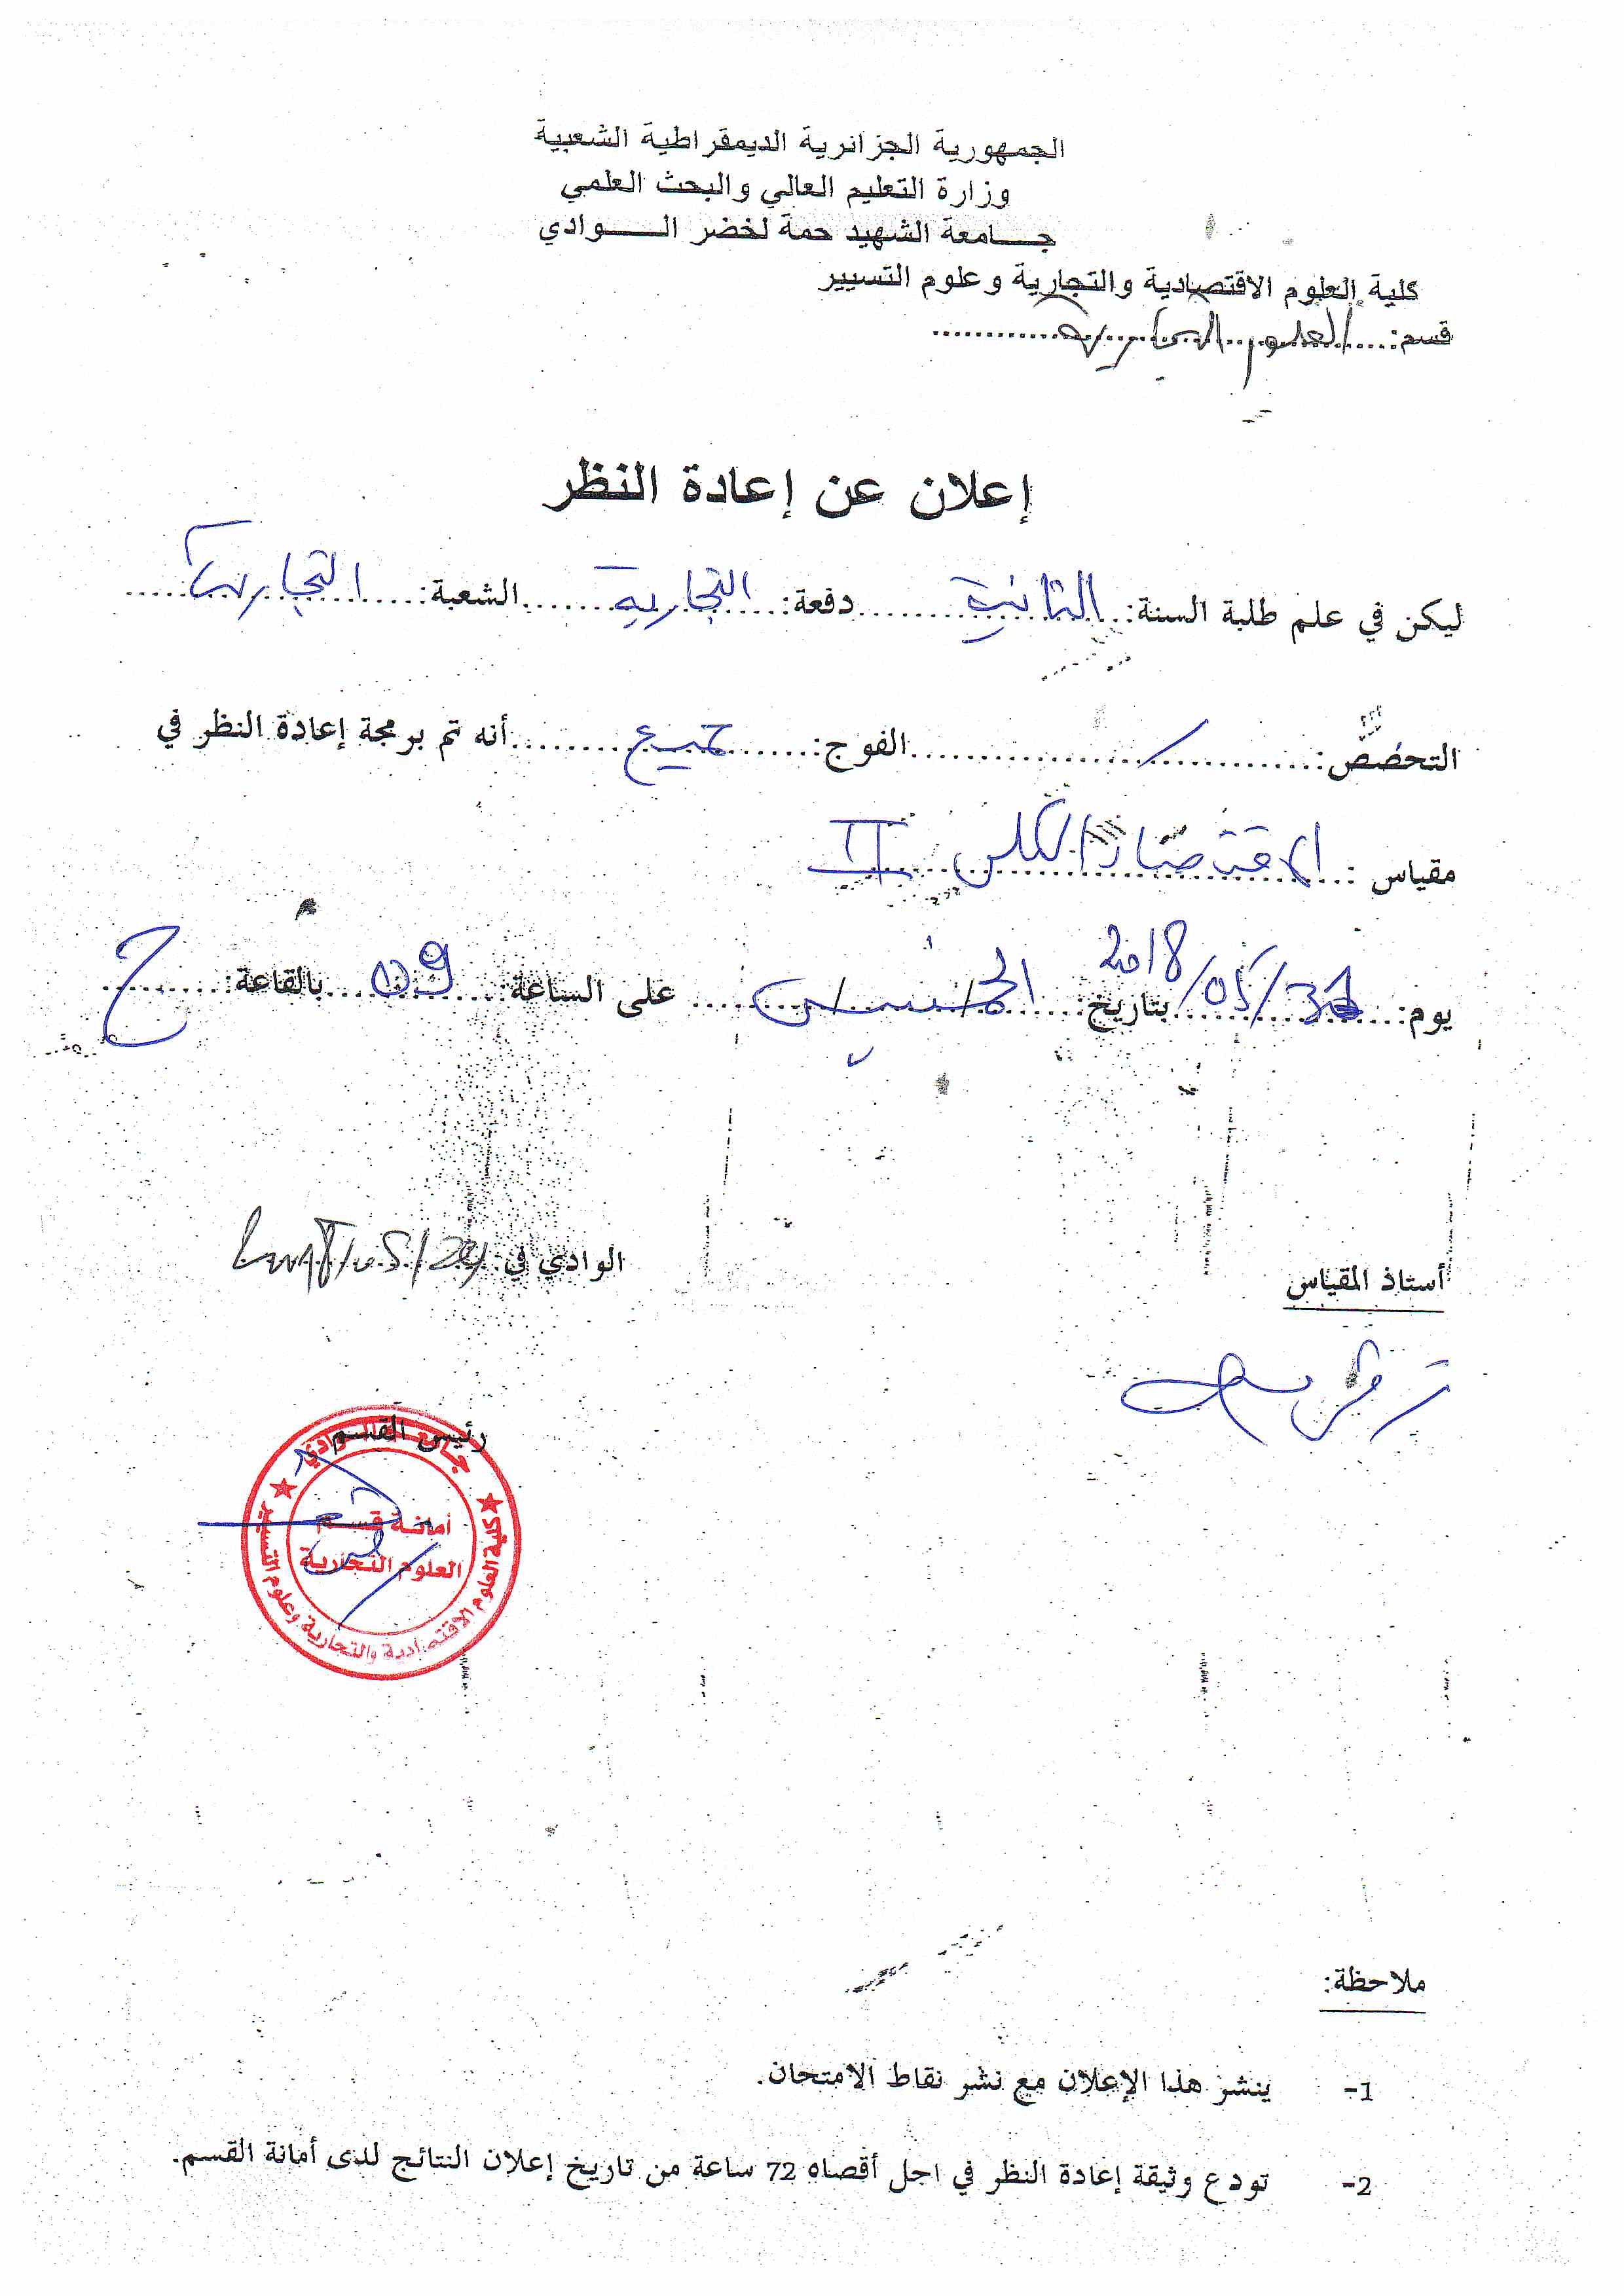 الجمهورية الجزائرية الديمقراطية الشعبية
وزارة التعليم العالي والبحث العلمي
جـــامعة الشهيد حمة لخضر الـــــوادي
كلية العلوم الاقتصادية والتجارية وعلوم التسيير
قسم: العلوم التجارية
إعلان عن إعادة النظر
ليكن في علم طلبة السنة: الثانية دفعة: التجارية الشعبة: التجارية
التخصص: / الفوج: جميع أنه تم برمجة إعادة النظر في
مقياس : الاقتصاد الكلي II
يوم: 31/05/2018 بتاريخ: الخميس على الساعة: 09 بالقاعة: ح
الوادي في:
أستاذ المقياس
رئيس القسم
أمانة قسم
العلوم التجارية
كلية العلوم الاقتصادية والتجارية وعلوم التسيير
ملاحظة:
1- ينشر هذا الإعلان مع نشر نقاط الامتحان.
2- تودع وثيقة إعادة النظر في اجل أقصاه 72 ساعة من تاريخ إعلان النتائج لدى أمانة القسم.